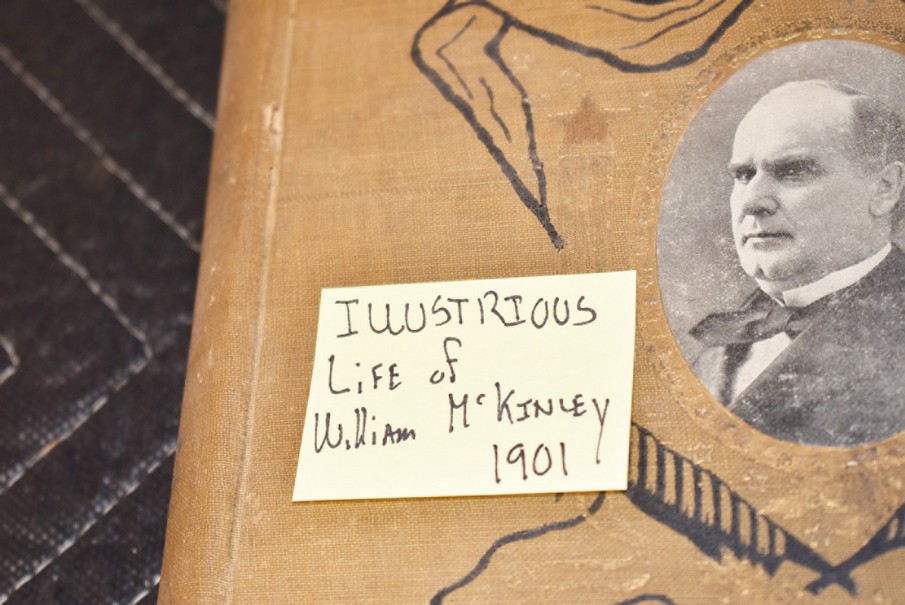 ILLUSTRIOUS
LiFE of
William McKinley
1901